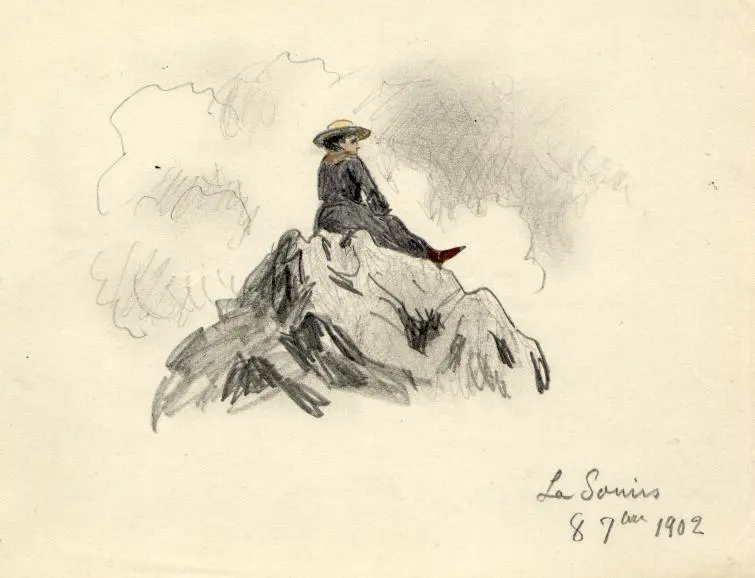 La Souris
8 7bre 1902